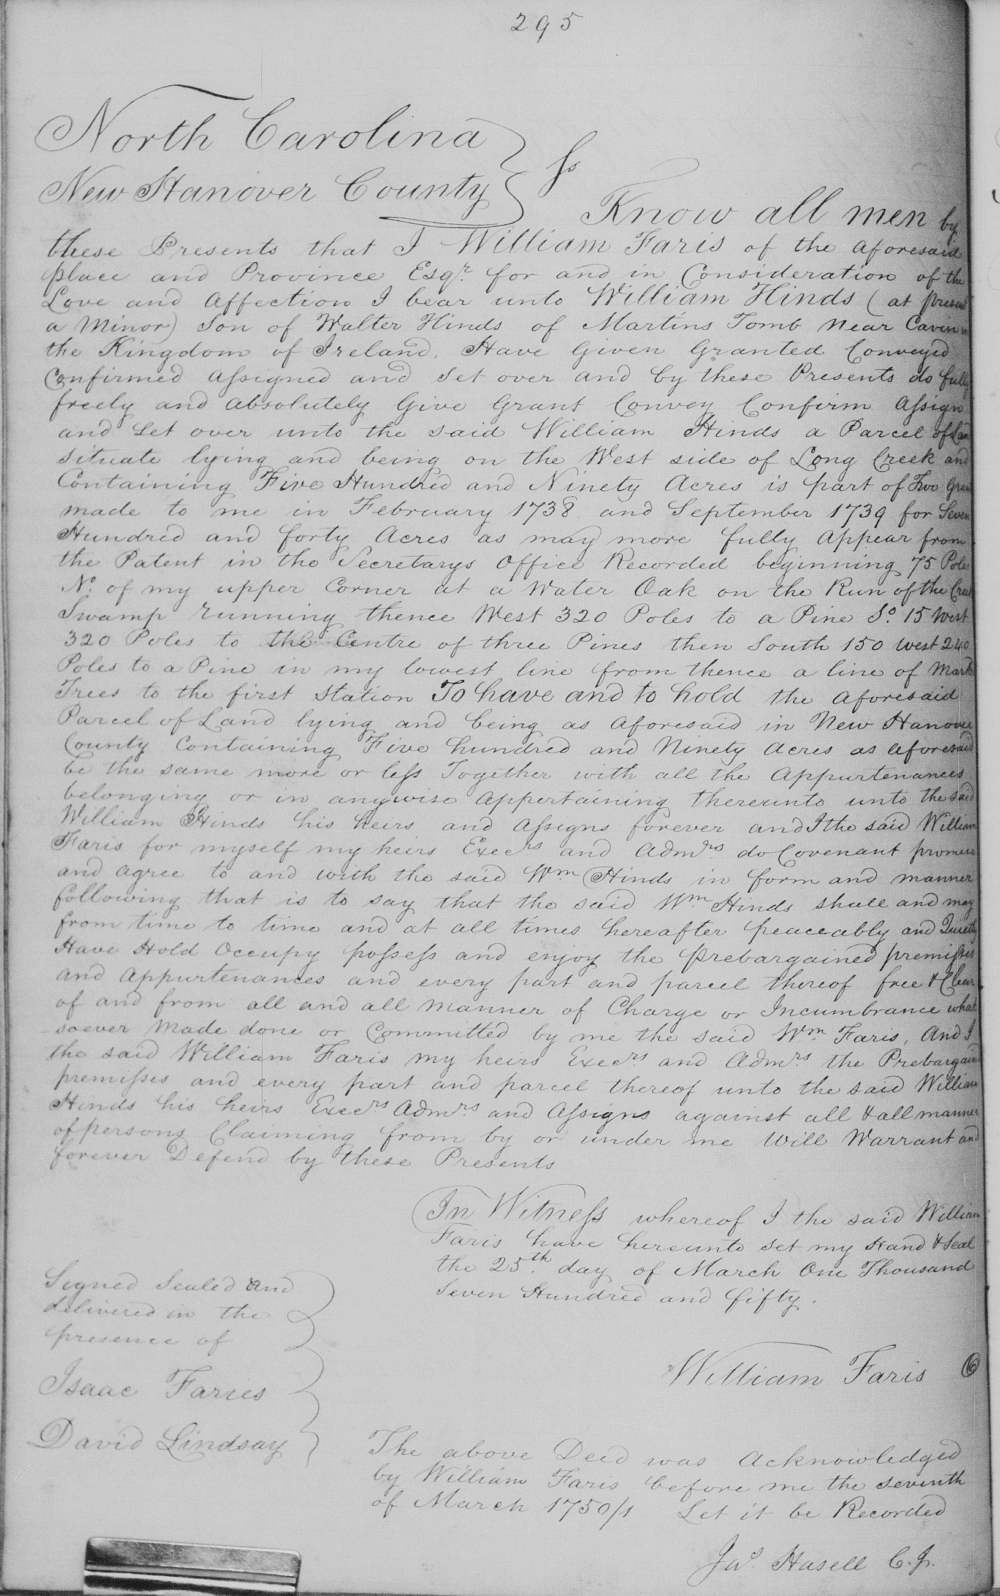 295
North Carolina
New Hanover County } ss
Know all men by
these Presents that I William Faris of the aforesaid
place and Province Esqr. for and in Consideration of the
Love and Affection I bear unto William Hinds (at present
a Minor) Son of Walter Hinds of Martins Tomb Near Cavin in
the Kingdom of Ireland. Have Given Granted Conveyed
Confirmed Assigned and Set over and by these Presents do fully
freely and absolutely Give Grant Convey Confirm Assign
and Set over unto the said William Hinds a Parcel of Land
situate lying and being on the West side of Long Creek and
Containing Five Hundred and Ninety Acres is part of Two Gran
made to me in February 1738 and September 1739 for Seven
Hundred and forty Acres as may more fully Appear from
the Patent in the Secretarys Office Recorded beginning 75 Poles
No. of my upper Corner at a Water Oak on the Run of the
Swamp running thence West 320 Poles to a Pine So. 15 West
320 Poles to the Centre of three Pines then South 150 West 240
Poles to a Pine in my lowest line from thence a line of Markt
Trees to the first Station To have and to hold the aforesaid
Parcel of Land lying and being as aforesaid in New Hanover
County Containing Five hundred and Ninety Acres as aforesaid
be the same more or less Together with all the Appurtenances
belonging or in anywise Appertaining thereunto unto the said
William Hinds his heirs and Assigns forever and I the said William
Faris for myself my heirs Execrs and Admrs do Covenant promise
and agree to and with the said Wm Hinds in form and manner
following that is to say that the said Wm Hinds shall and may
from time to time and at all times hereafter peaceably and Quietly
Have Hold Occupy possess and enjoy the Prebargained premisses
and appurtenances and every part and parcel thereof free & Clear
of and from all and all manner of Charge or Incumbrance what
soever made done or Committed by me the said Wm. Faris, And I
the said William Faris my heirs Execrs and Admrs. the Prebargaind
premisses and every part and parcel thereof unto the said William
Hinds his heirs Execrs Admrs and Assigns against all & all manner
of persons Claiming from by or under me Will Warrant and
forever Defend by these Presents
In Witness whereof I the said William
Faris have hereunto set my Hand & Seal
the 25th. day of March One Thousand
Seven Hundred and fifty.
Signed Sealed and
delivered in the
presence of
Isaac Faries
David Lindsay
William Faris
The above Deed was Acknowledged
by William Faris before me the seventh
of March 1750/1 Let it be Recorded
Jas. Hasell C.J.